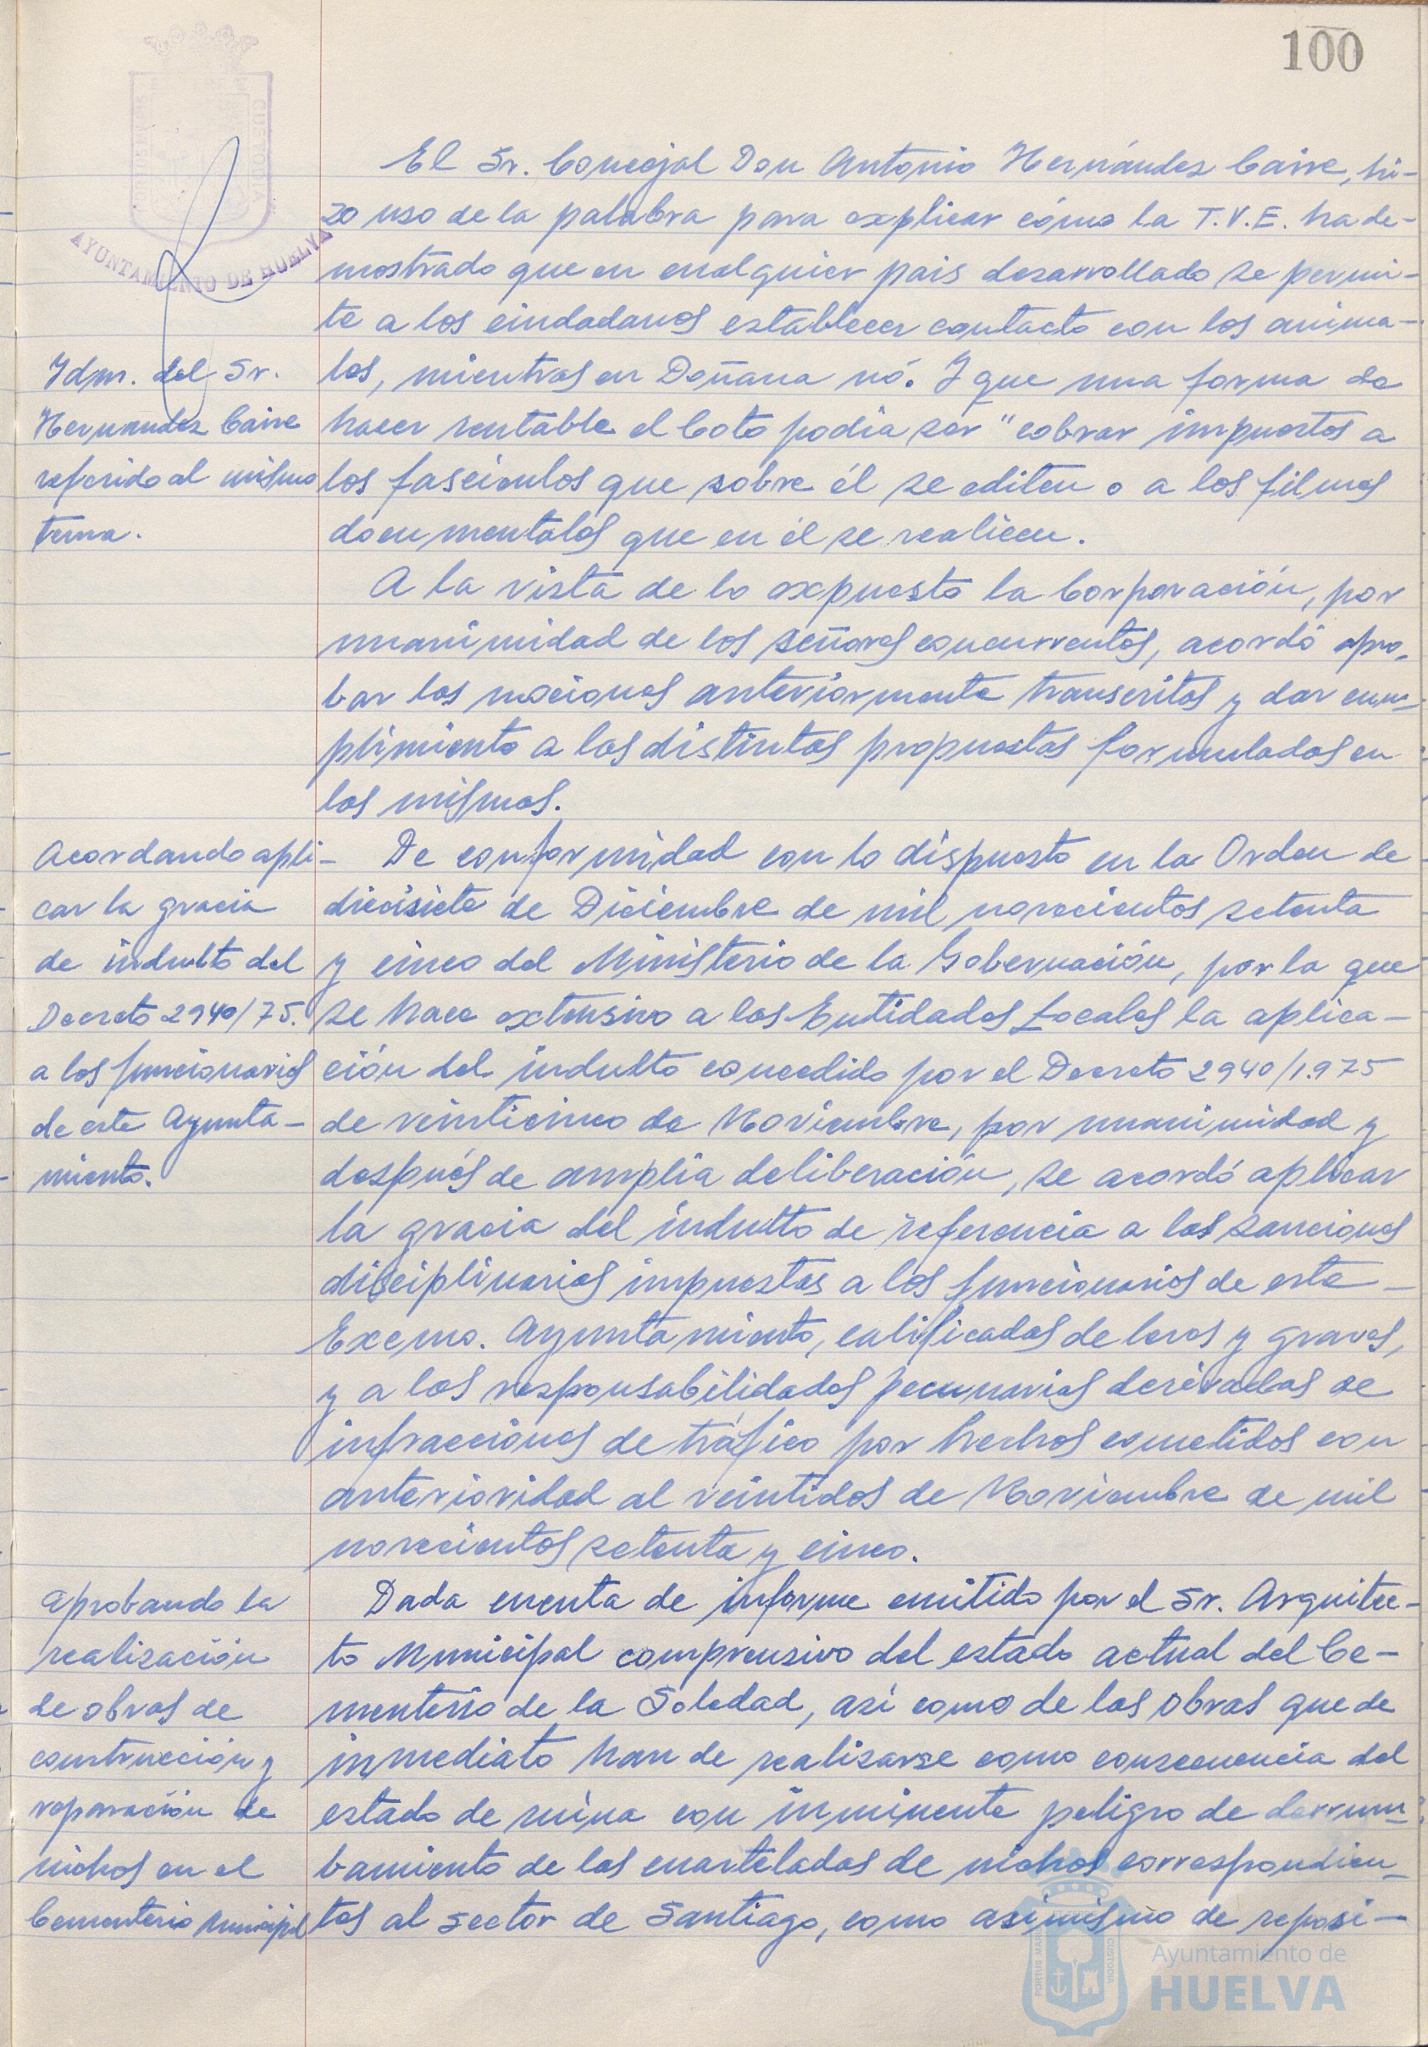 100
AYUNTAMIENTO DE HUELVA
El Sr. Concejal Don Antonio Hernández Caire, hi-
zo uso de la palabra para explicar cómo la T.V.E. ha de-
mostrado que en cualquier pais desarrollado se permi-
te a los ciudadanos establecer contacto con los anima-
les, mientras en Doñana nó. Y que una forma de
hacer rentable el Coto podia ser "cobrar impuestos a
los fascículos que sobre él se editen o a los filmes
documentales que en él se realicen.
Idm. del Sr.
Hernandez Caire
referido al mismo
tema.
A la vista de lo expuesto la Corporación, por
unanimidad de los señores concurrentes, acordó apro-
bar las mociones anteriormente transcritas y dar cum-
plimiento a las distintas propuestas formuladas en
las mismas.
Acordando apli-
car la gracia
de indulto del
Decreto 2940/75.
a los funcionarios
de este Ayunta-
miento.
De conformidad con lo dispuesto en la Orden de
diecisiete de Diciembre de mil novecientos setenta
y cinco del Ministerio de la Gobernación, por la que
se hace extensivo a las Entidades Locales la aplica-
ción del indulto concedido por el Decreto 2940/1.975
de veinticinco de Noviembre, por unanimidad y
después de amplia deliberación, se acordó aplicar
la gracia del indulto de referencia a las sanciones
disciplinarias impuestas a los funcionarios de este
Excmo. Ayuntamiento, calificadas de leves y graves,
y a las responsabilidades pecunarias derivadas de
infracciones de tráfico por hechos cometidos con
anterioridad al veintidos de Noviembre de mil
novecientos setenta y cinco.
Aprobando la
realización
de obras de
construcción y
reparación de
nichos en el
Cementerio Municipal
Dada cuenta de informe emitido por el Sr. Arquitec-
to Municipal comprensivo del estado actual del Ce-
menterio de la Soledad, asi como de las obras que de
inmediato han de realizarse como consecuencia del
estado de ruina con inminente peligro de derrum-
bamiento de las cuarteladas de nichos correspondien-
tes al sector de Santiago, como asimismo de reposi-
Ayuntamiento de
HUELVA